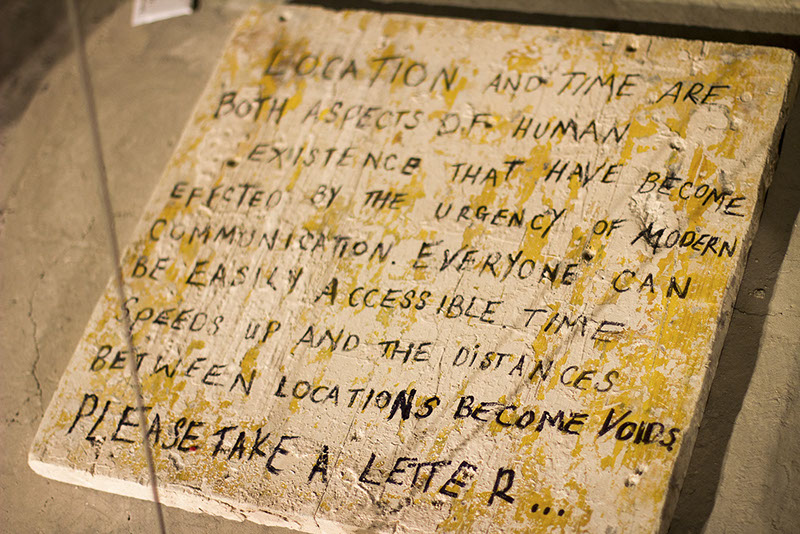 LOCATION AND TIME ARE
BOTH ASPECTS OF HUMAN
EXISTENCE THAT HAVE BECOME
EFFECTED BY THE URGENCY OF MODERN
COMMUNICATION. EVERYONE CAN
BE EASILY ACCESSIBLE TIME
SPEEDS UP AND THE DISTANCES
BETWEEN LOCATIONS BECOME VOIDS
PLEASE TAKE A LETTER...